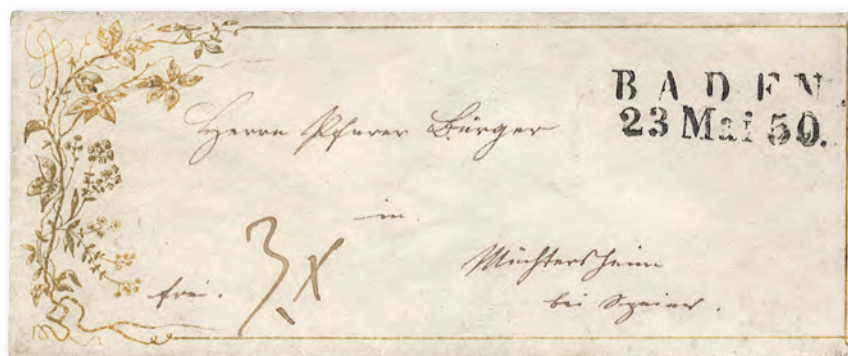 BADEN
23 Mai 50.
Herrn Pfarrer Bürger
in
Mechtersheim
bei Speier.
frei.
3 x